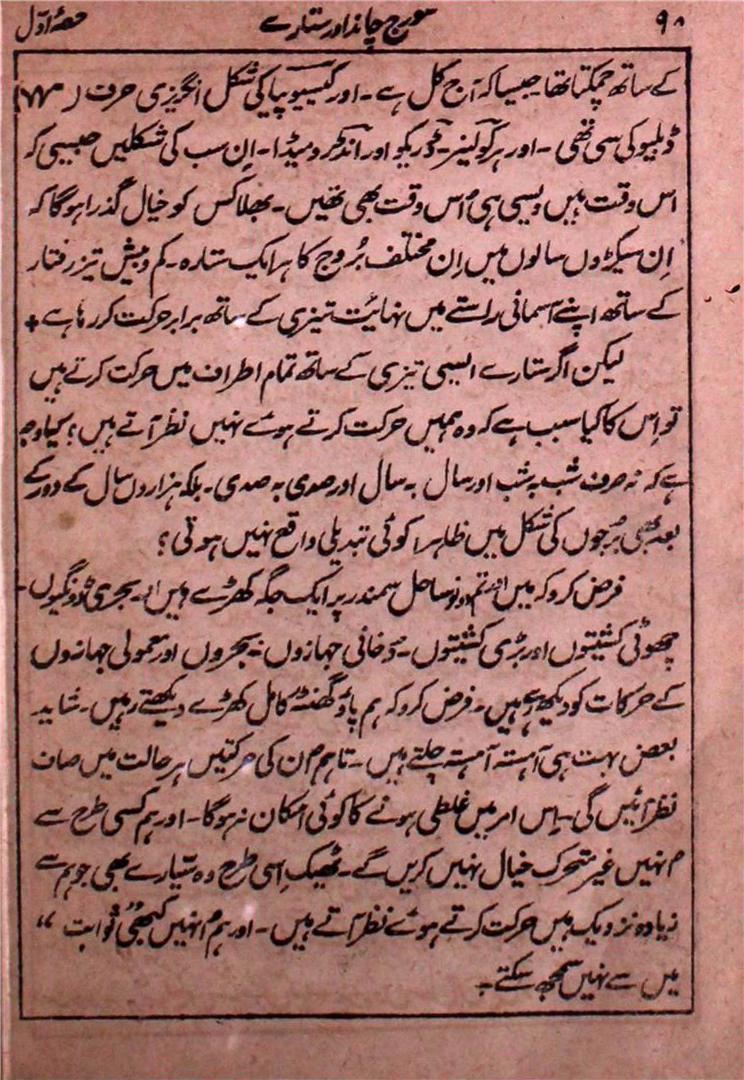 ۹۰ سورج چاند اور ستارے حصۂ اوّل
کے ساتھ چمکتا تھا۔ جیسا کہ آج کل ہے۔ اور کیسیوپیا کی شکل انگریزی حرف (W)
ڈبلیو کی سی تھی۔ اور ہرکولیز۔ ڈریکو اور انڈکرومیڈا۔ اِن سب کی شکلیں جیسی کہ
اس وقت ہیں ویسی ہی اُس وقت بھی تھیں۔ بھلا کس کو خیال گذرا ہوگا کہ
اِن سیکڑوں سالوں میں اِن مختلف بُروج کا ہر ایک ستارہ۔ کم و بیش تیز رفتار
کے ساتھ اپنے آسمانی راستے میں نہایت تیزی کے ساتھ برابر حرکت کر رہا ہے +
لیکن اگر ستارے ایسی تیزی کے ساتھ تمام اطراف میں حرکت کرتے ہیں
تو اِس کا کیا سبب ہے کہ وہ ہمیں حرکت کرتے ہوئے نہیں نظر آتے ہیں؟ کیا وجہ
ہے کہ نہ صرف شب بہ شب اور سال بہ سال اور صدی بہ صدی۔ بلکہ ہزاروں سال کے دور کے
بعد بھی بُرجوں کی شکل میں ظاہرا کوئی تبدیلی واقع نہیں ہوتی؟
فرض کرو کہ میں اور تم دونو ساحل سمندر پر ایک جگہ کھڑے ہیں اور بحری ڈونگیوں۔
چھوٹی کشتیوں اور بڑی کشتیوں۔ دخانی جہازوں۔ بجروں اور معمولی جہازوں
کے حرکات کو دیکھ رہے ہیں۔ فرض کرو کہ ہم پاؤ گھنٹہ کامل کھڑے دیکھتے رہیں۔ شاید
بعض بہت ہی آہستہ آہستہ چلتے ہیں۔ تاہم اُن کی حرکتیں ہر حالت میں صاف
نظر آئیں گی۔ اِس امر میں غلطی ہونے کا کوئی امکان نہ ہوگا۔ اور ہم کسی طرح سے
اُنہیں غیر متحرک خیال نہیں کریں گے۔ ٹھیک اِسی طرح وہ سیّارے بھی جو ہم سے
زیادہ نزدیک ہیں حرکت کرتے ہوئے نظر آتے ہیں۔ اور ہم اُنہیں کبھی ”ثوابت“
میں سے نہیں سمجھ سکتے۔